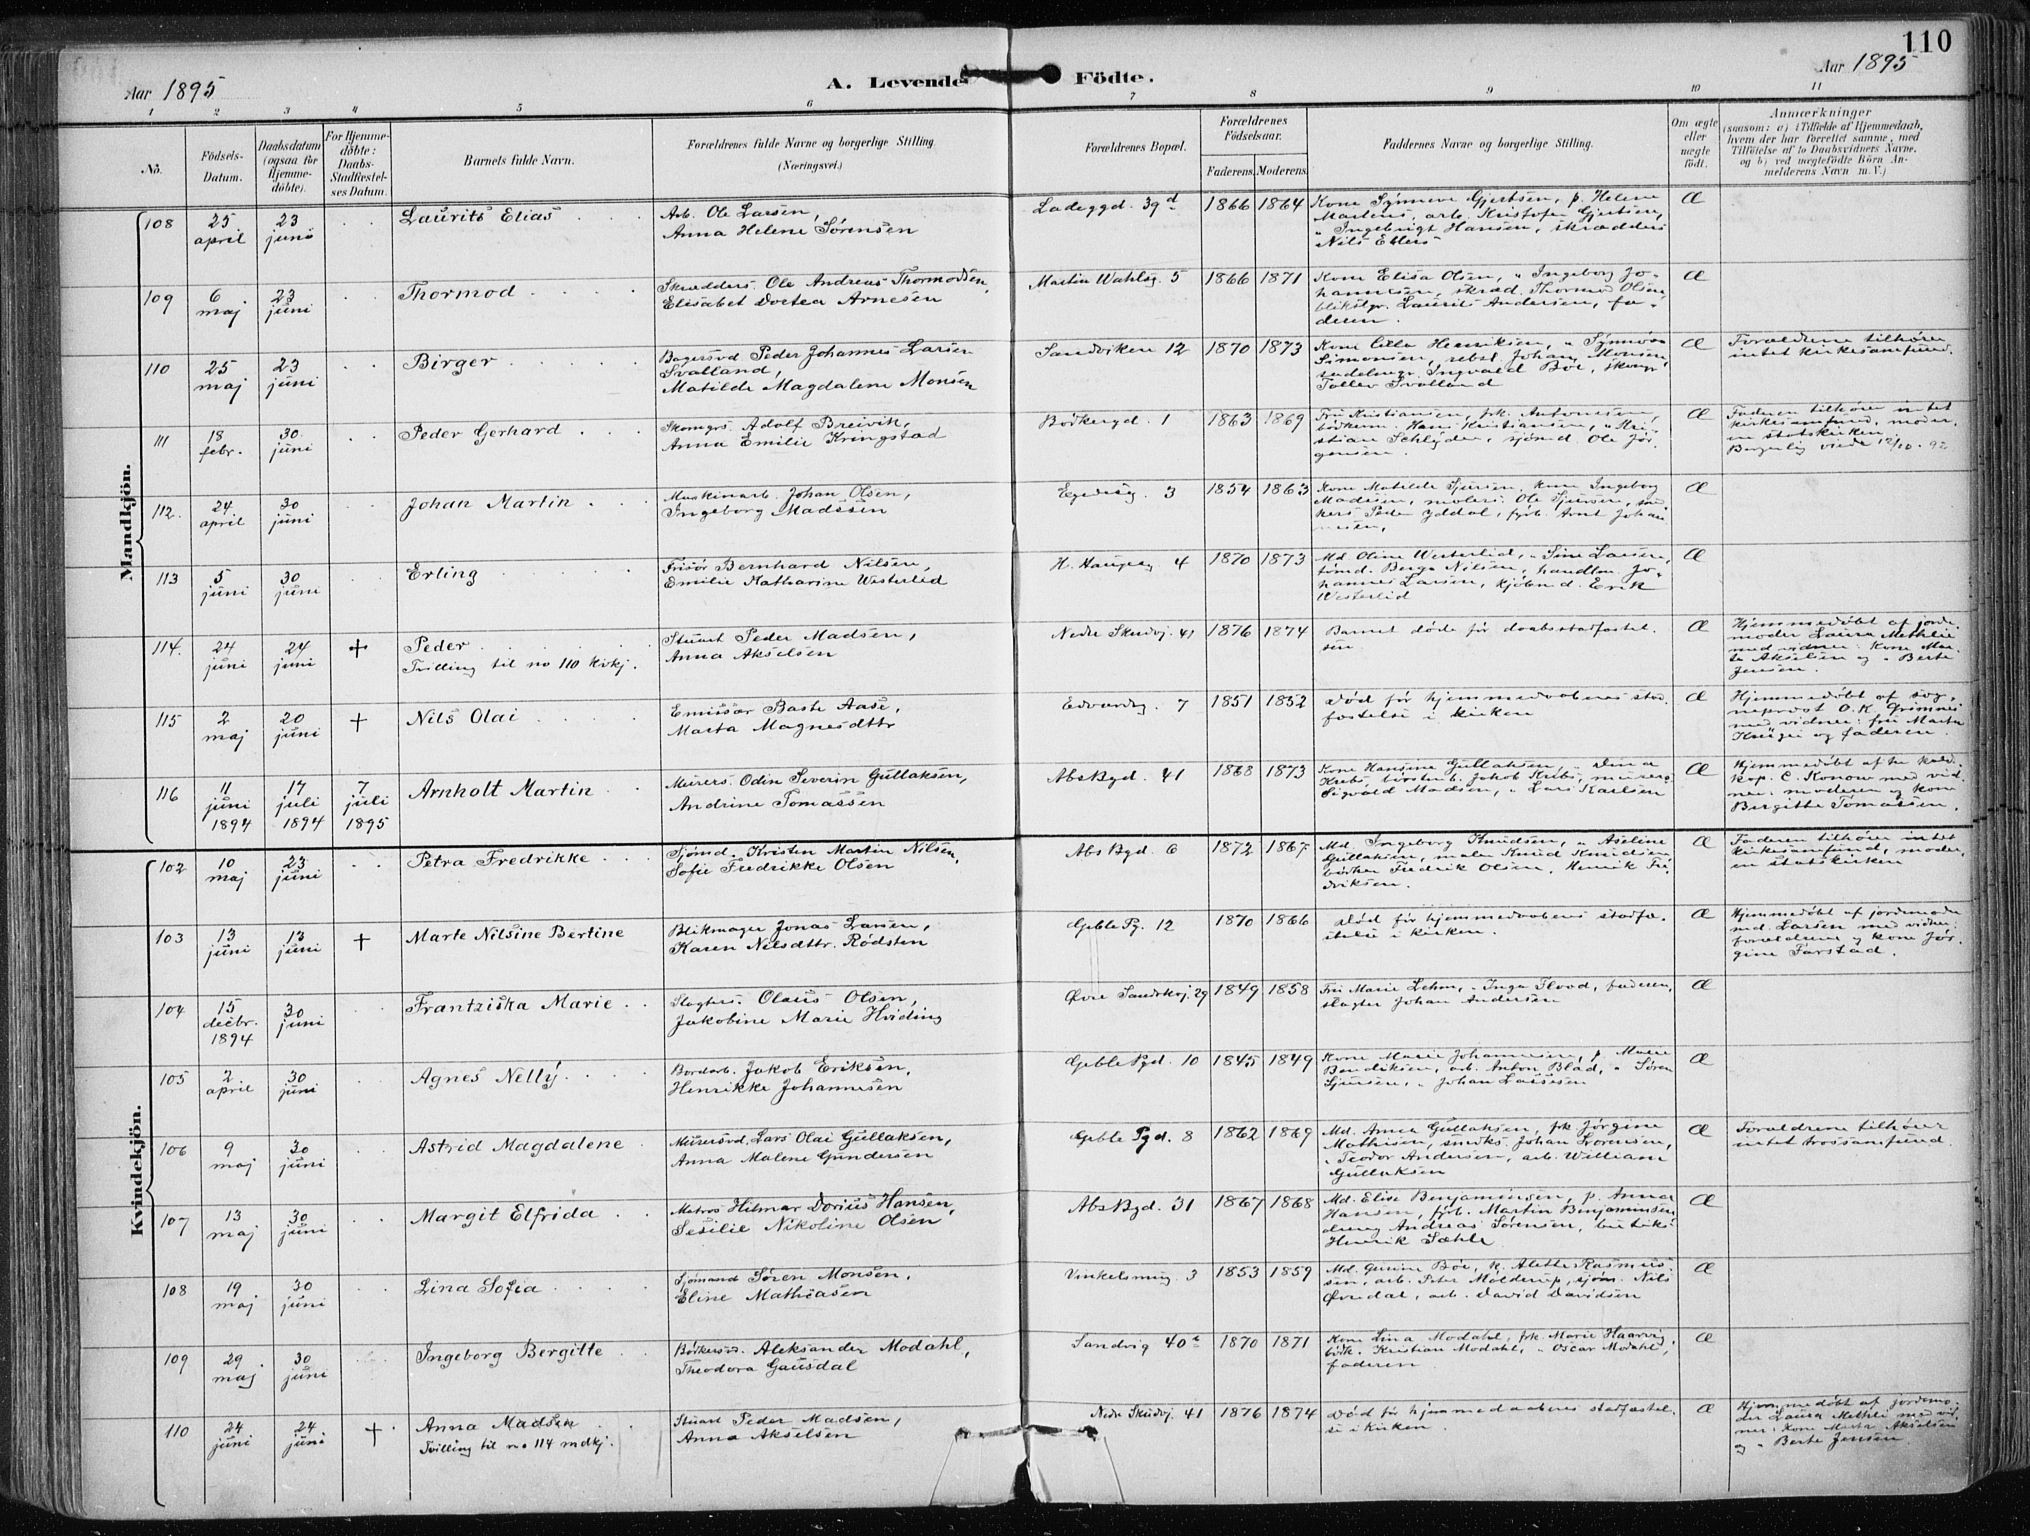 110
Aar 1895
A. Levende Födte.
Aar 1895
1 2 3 4 5 6 7 8 9 10 11
No.
Födsels-Datum.
Daabsdatum (ogsaa for Hjemme-döbte).
For Hjemme-döbte: Daabs-Stadfæstel-ses Datum.
Barnets fulde Navn.
Forældrenes fulde Navne og borgerlige Stilling. (Næringsvei.)
Forældrenes Bopæl.
Forældrenes Födselsaar.
Faderens. Moderens.
Faddernes Navne og borgerlige Stilling.
Om ægte eller uægte födt.
Anmærkninger
(saasom: a) i Tilfælde af Hjemmedaab, hvem der har forrettet samme, med Tilföielse af to Daabsvidners Navne, og b) ved uægtefödte Börn An-melderens Navn m. V.)
Mandkjön.
108 25 april 23 juni Laurits Elias
Arb. Ole Larsen,
Anna Helene Sørensen
Ladeggd. 39 d 1866 1864
Kone Synneve Gjertsen, p. Helene
Martens, arb. Kristofer Gjertsen,
" Ingebrigt Hansen, skrædders
Nils Ehlers
Æ
109 6 maj 23 juni Thormod
Skrædders. Ole Andreas Thormodsen,
Elisabet Dortea Arnesen
Martin Wahlsg. 5 1866 1871
Kone Elisa Olsen, " Ingeborg Jo-
hannesen, skræd. Thormod Olsen,
blikslgr. Laurits Andersen, fa-
deren.
Æ
110 25 maj 23 juni Birger
Bagersvd Peder Johannes Larsen
Svalland,
Matilde Magdalene Monsen
Sandviken 12 1870 1873
Henriksen, " Synnøve
Simonsen, rebsl. Johan Monsen,
Ingvald Boe,
Tollev Svalland
Æ
Forældrene tilhører
intet kirkesamfund.
111 18 febr. 30 juni Peder Gerhard
Skomgrs. Adolf Breivik,
Anna Emilie Kringstad
Bødkergd. 1 1863 1869
Fru Kristiansen, frk. Antonisen,
bødkerm. Hans Kristiansen, " Kri-
stian Schlyder, sjømd Ole Jør-
gensen.
Æ
Faderen tilhører intet
kirkesamfund, moder-
en statskirken.
Borgerlig viede 12/10. 92
112. 24 april 30 juni Johan Martin
Maskinarb. Johan Olsen,
Ingeborg Madssen
Egedesg. 3 1854 1863
Kone Matilde Sjursen, kone Ingeborg
Madsen, molers. Ole Sjursen, snæ-
kers Peder Yddal, fyrb. Arnt Johan-
nesen,
Æ
113 5 juni 30 juni Erling
Frisør Bernhard Nilsen,
Emilie Katharine Westerlid
H. Haugesg 4 1870 1873
Md Oline Westerlid, " Sine Larsen,
tømd. Berge Nilsen, handlm. Jo-
hannes Larsen, kjøbmd. Erik
Westerlid
Æ
114. 24 juni 24 juni + Peder
Tvilling til no 110 kvkj.
Stuart Peder Madsen,
Anna Akselsen
Nedre Skudvj. 41 1876 1874
Barnet døde før daabsstadfæstel-
sen
Æ
Hjemmedøbt af jorde-
moder Laura Methlie
med vidner: Kone Mar-
ta Akselsen og " Berte
Jensen.
115 2 maj 20 juni + Nils Olai
Emissær Baste Aase,
Marta Magnesdttr
Edvardsg. 7 1851 1852
Død før hjemmedaabens stad-
fæstelse i kirken
Æ
Hjemmedøbt af sog-
neprest O. K. Grimnes
med vidner: fru Marta
Krüger og faderen.
116 11 juni 1894 17 juli 1894 7 juli 1895 Arnholt Martin
Murers. Odin Severin Gullaksen,
Andrine Tomassen
Abs Bgd. 41 1868 1873
Kone Hansine Gullaksen, " Dina
Krebs, Jakob Krebs, murers
Sigvald Madsen, " Lars Karlsen
Æ
Hjemmedøbt af
kap. C. Konow med vid-
ner: moderen og kone
Bergitte Tomassen.
Kvindekjön.
102 10 maj 23 juni Petra Fredrikke
Sjømd. Kristen Martin Nilsen,
Sofie Fredrikke Olsen
Abs Bgd. 6 1872 1867
Md. Ingeborg Knudsen, " Aseline
Gullaksen, maler Knud Knudsen,
bødker Fredrik Olsen, Henrik Fre-
driksen.
Æ
Faderen tilhører intet
kirkesamfund, moder-
en statskirken
103 13 juni 13 juni + Marte Nilsine Bertine
Blikmager Jonas Larsen,
Karen Nilsdttr. Rødsten
Geble Pg. 12 1870 1866
Død før hjemmedaabens stadfæ-
stelse i kirken.
Æ
Hjemmedøbt af jordemoder
md. Larsen med vidner:
forældrene og kone Jør-
gine Farstad.
104 15 decbr. 1894 30 juni Frantziska Marie
Slagters. Olaus Olsen,
Jakobine Marie Hviding
Øvre Sandvkvj. 29 1849 1858
Fru Marie Lehm, " Inga Flood, faderen,
slagter Johan Andersen
Æ
105 2 april 30 juni Agnes Nelly
Bordarb. Jakob Eriksen,
Henrikke Johannesen
Geble Pgd. 10 1845 1849
Kone Marie Johannesen, p Marie
Bendiksen, arb. Anton Blad, " Søren
Sjursen, " Johan Lassesen
Æ
106 9 maj 30 juni Astrid Magdalene
Murersvd. Lars Olai Gullaksen,
Anna Malene Gundersen
Geble Pgd. 8 1862 1869
Md. Anna Gullaksen, frk Jørgine
Mathisen, smdks. Johan Lorensen,
" Teodor Andersen, arb. William
Gullaksen
Æ
Forældrene tilhører
intet trossamfund
107 13 maj 30 juni Margit Elfrida
Matros Hilmar Dorius Hansen,
Sesilie Nikoline Olsen
Abs Bgd. 31 1867 1868
Md. Elise Benjaminsen, p. Anna
Hansen, fyrb. Martin Benjaminsen
Andreas Sørensen, butiks-
Henrik Sæhle
Æ
108 19 maj 30 juni Lina Sofia
Sjømand Søren Monsen,
Eline Mathiasen
Vinkelsmug 3 1853 1859
Md. Gurine Boe, k. Alette Rasmus-
sen, arb. Peter Molderup, sjøm. Nils
Øvredal, arb. David Davidsen
Æ
109 29 maj 30 juni Ingeborg Bergitte
Bødkersvd. Aleksander Modahl,
Theodora Gausdal
Sandvig 40 c 1870 1871
Kone Lina Modahl, frk. Marie Haarvig
bødk. Kristian Modahl, " Oscar Modahl,
faderen
Æ
110 24 juni 24 juni + Anna Madsen
Tvilling til no 114 mdkj.
Stuart Peder Madsen,
Anna Akselsen
Nedre Skudvj. 41 1876 1874
Død før hjemmedaabens stadfæstel-
se i kirken.
Æ
Hjemmedøbt af jordemo-
der Laura Methli med vid-
ner: Kone Marta Akselsen
og " Berte Jensen